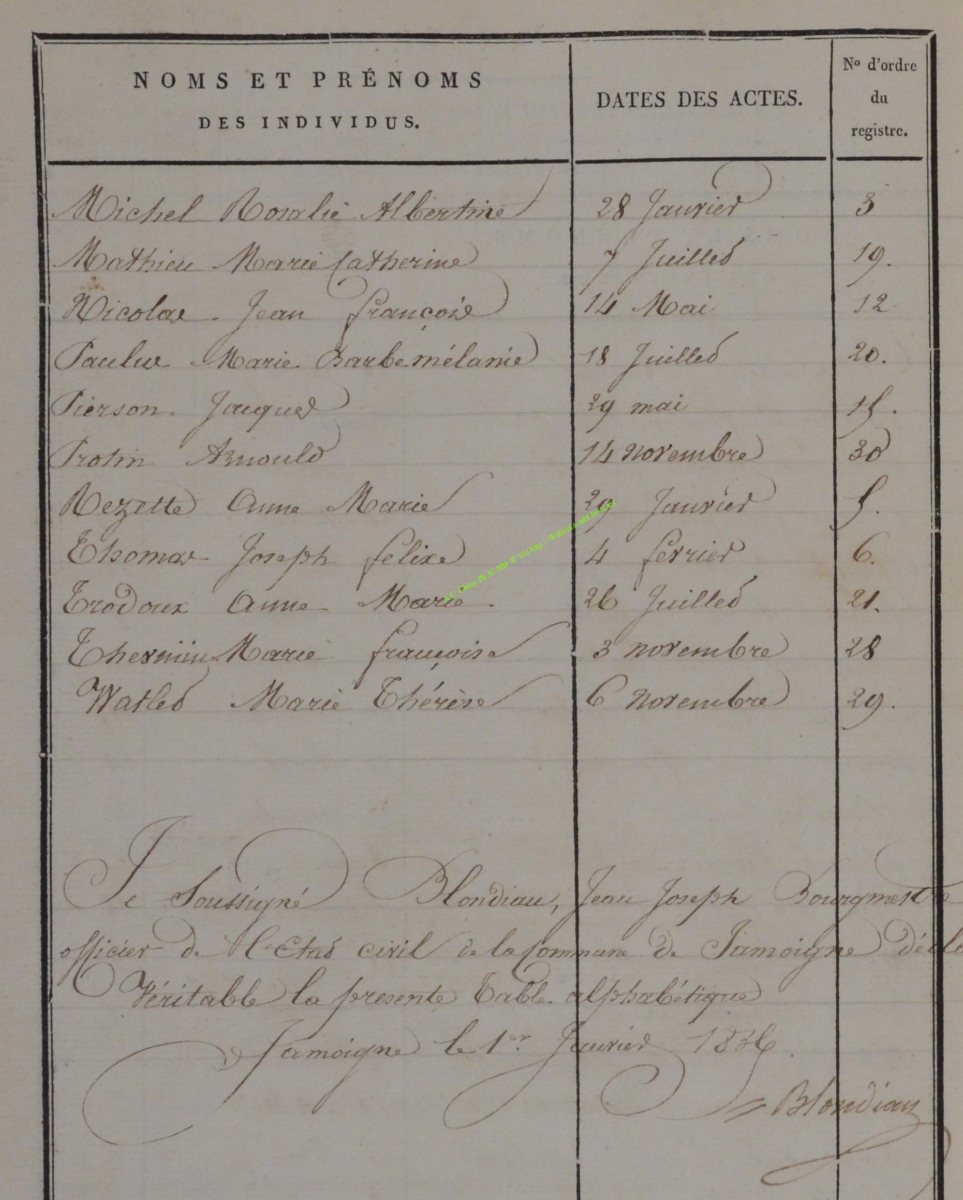 NOMS ET PRÉNOMS
DES INDIVIDUS.
DATES DES ACTES.
Nº d'ordre
du
registre.
Michel Rosalie Albertine 28 Janvier 3
Mathieu Marie Catherine 7 Juillet 19.
Nicolas Jean françois 14 Mai 12
Paulus Marie Barbe mélanie 18 Juillet 20.
Pierson Jacques 29 mai 15.
Protin Arnould 14 novembre 30
Rezette Anne Marie 29 Janvier 5.
Thomas Joseph félix 4 février 6.
Trodoux Anne Marie 26 Juillet 21.
Marie françoise 3 novembre 28
Watlet Marie Thérèse 6 novembre 29.
Je Soussigné Blondiau, Jean Joseph Bourgmestre
officier de l'Etat civil de la Commune de Jamoigne
Véritable la presente Table alphabétique
Jamoigne le 1er Janvier 1836.
Blondiau